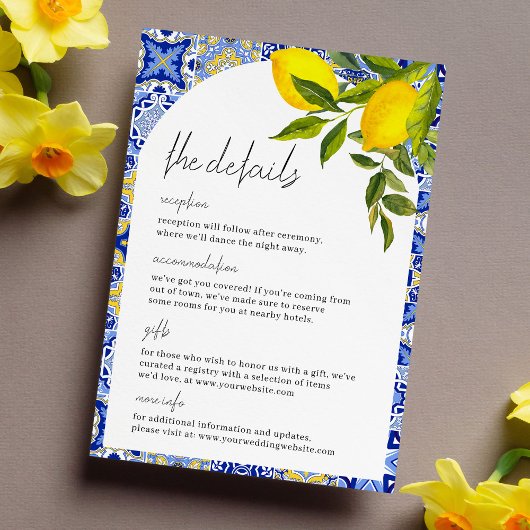 the details
reception
reception will follow after ceremony,
where we'll dance the night away.
accommodation
we've got you covered! If you're coming from
out of town, we've made sure to reserve
some rooms for you at nearby hotels.
gifts
for those who wish to honor us with a gift, we've
curated a registry with a selection of items
we'd love, at www.yourwebsite.com
more info
for additional information and updates,
please visit at: www.yourweddingwebsite.com